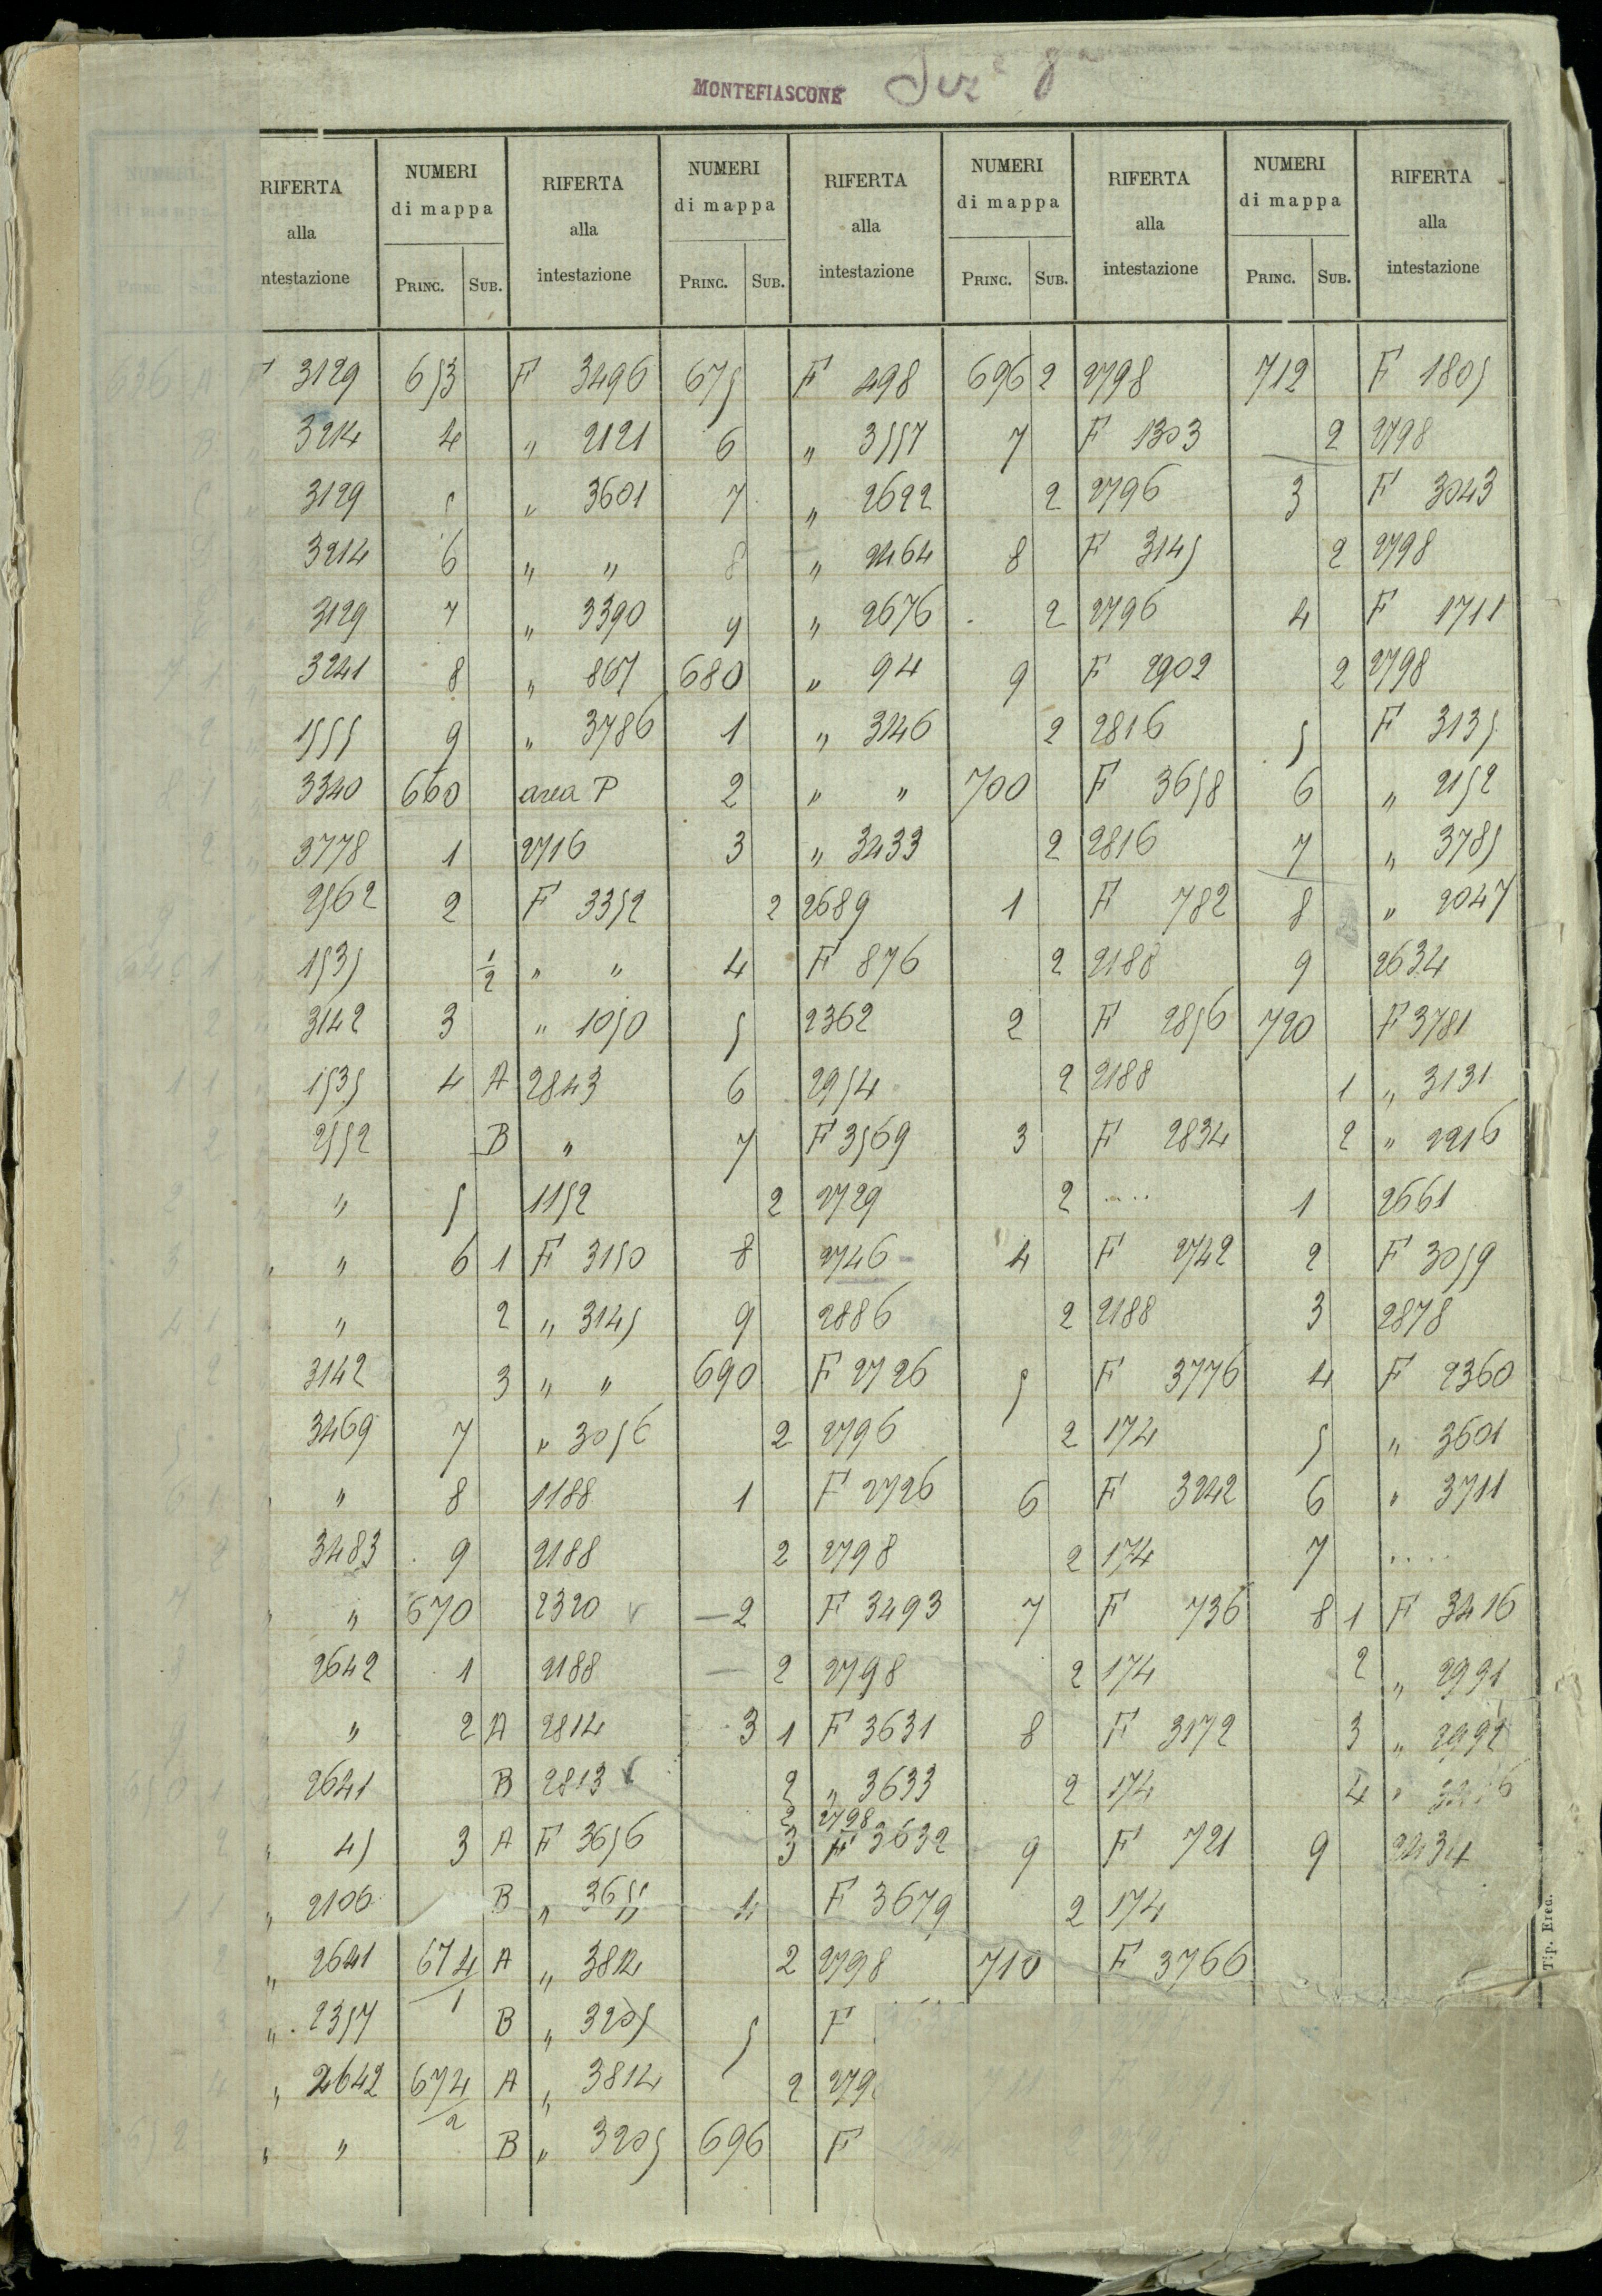 MONTEFIASCONE Sez.e 8a
NUMERI di mappa RIFERTA NUMERI RIFERTA NUMERI RIFERTA NUMERI RIFERTA NUMERI RIFERTA
alla di mappa alla di mappa alla di mappa alla di mappa alla
ntestazione PRINC. SUB. intestazione PRINC. SUB. intestazione PRINC. SUB. intestazione PRINC. SUB. intestazione
636 A F 3129 653 F 3496 675 F 498 696 2 2798 712 F 1805
B " 3214 4 " 2121 6 " 3557 7 F 1303 2 2798
" 3129 5 " 3601 7 " 2622 2 2796 3 F 3043
3214 6 " " 8 " 2464 8 F 3145 2 2798
3129 7 " 3390 9 " 2676 2 2796 4 F 1711
7 1 " 3241 8 " 867 680 " 94 9 F 2902 2 2798
2 " 1555 9 " 3786 1 " 3146 2 2816 5 F 3135
8 1 " 3340 660 area P 2 " " 700 F 3658 6 " 2152
2 " 3778 1 2716 3 " 3433 2 2816 7 " 3785
2562 2 F 3352 2 2689 1 F 782 8 " 2047
1 " 1535 1/2 " " 4 F 876 2 2188 9 2634
2 " 3142 3 " 1050 5 2362 2 F 2856 720 F 3781
1 1 " 1535 4 A 2843 6 2954 2 2188 1 " 3131
2 2552 B " 7 F 3569 3 F 2834 2 " 2216
" 5 1152 2 2729 2 .... 1 2661
3 " " 6 1 F 3150 8 2746 4 F 2742 2 F 3059
4 1 " 2 " 3145 9 2886 2 2188 3 2878
2 3142 3 " " 690 F 2726 5 F 3776 4 F 2360
3469 7 " 3056 2 2796 2 174 5 " 3601
6 1 " " 8 1188 1 F 2726 6 F 3242 6 " 3711
2 3483 9 2188 2 2798 2 174 7 ....
7 " " 670 2320 v —2 F 3493 7 F 736 8 1 F 3416
2642 1 2188 — 2 2798 2 174 2 " 2991
9 " " 2 A 2814 3 1 F 3631 8 F 3172 3 " 2992
1 " 2641 B 2813 v 2 " 3633 2 174 4 "
2 2798
2 " 45 3 A F 3656 3 F 3632 9 F 721 9 2434
1 1 " 2106 B " 3655 4 F 3679 2 174
" 2641 674/1 A " 3814 2 2798 710 F 3766
" 2357 B " 3205 5 F
4 " 2642 674/2 A " 3814 2 279
" " B " 3205 696 F
Tip. Ered.